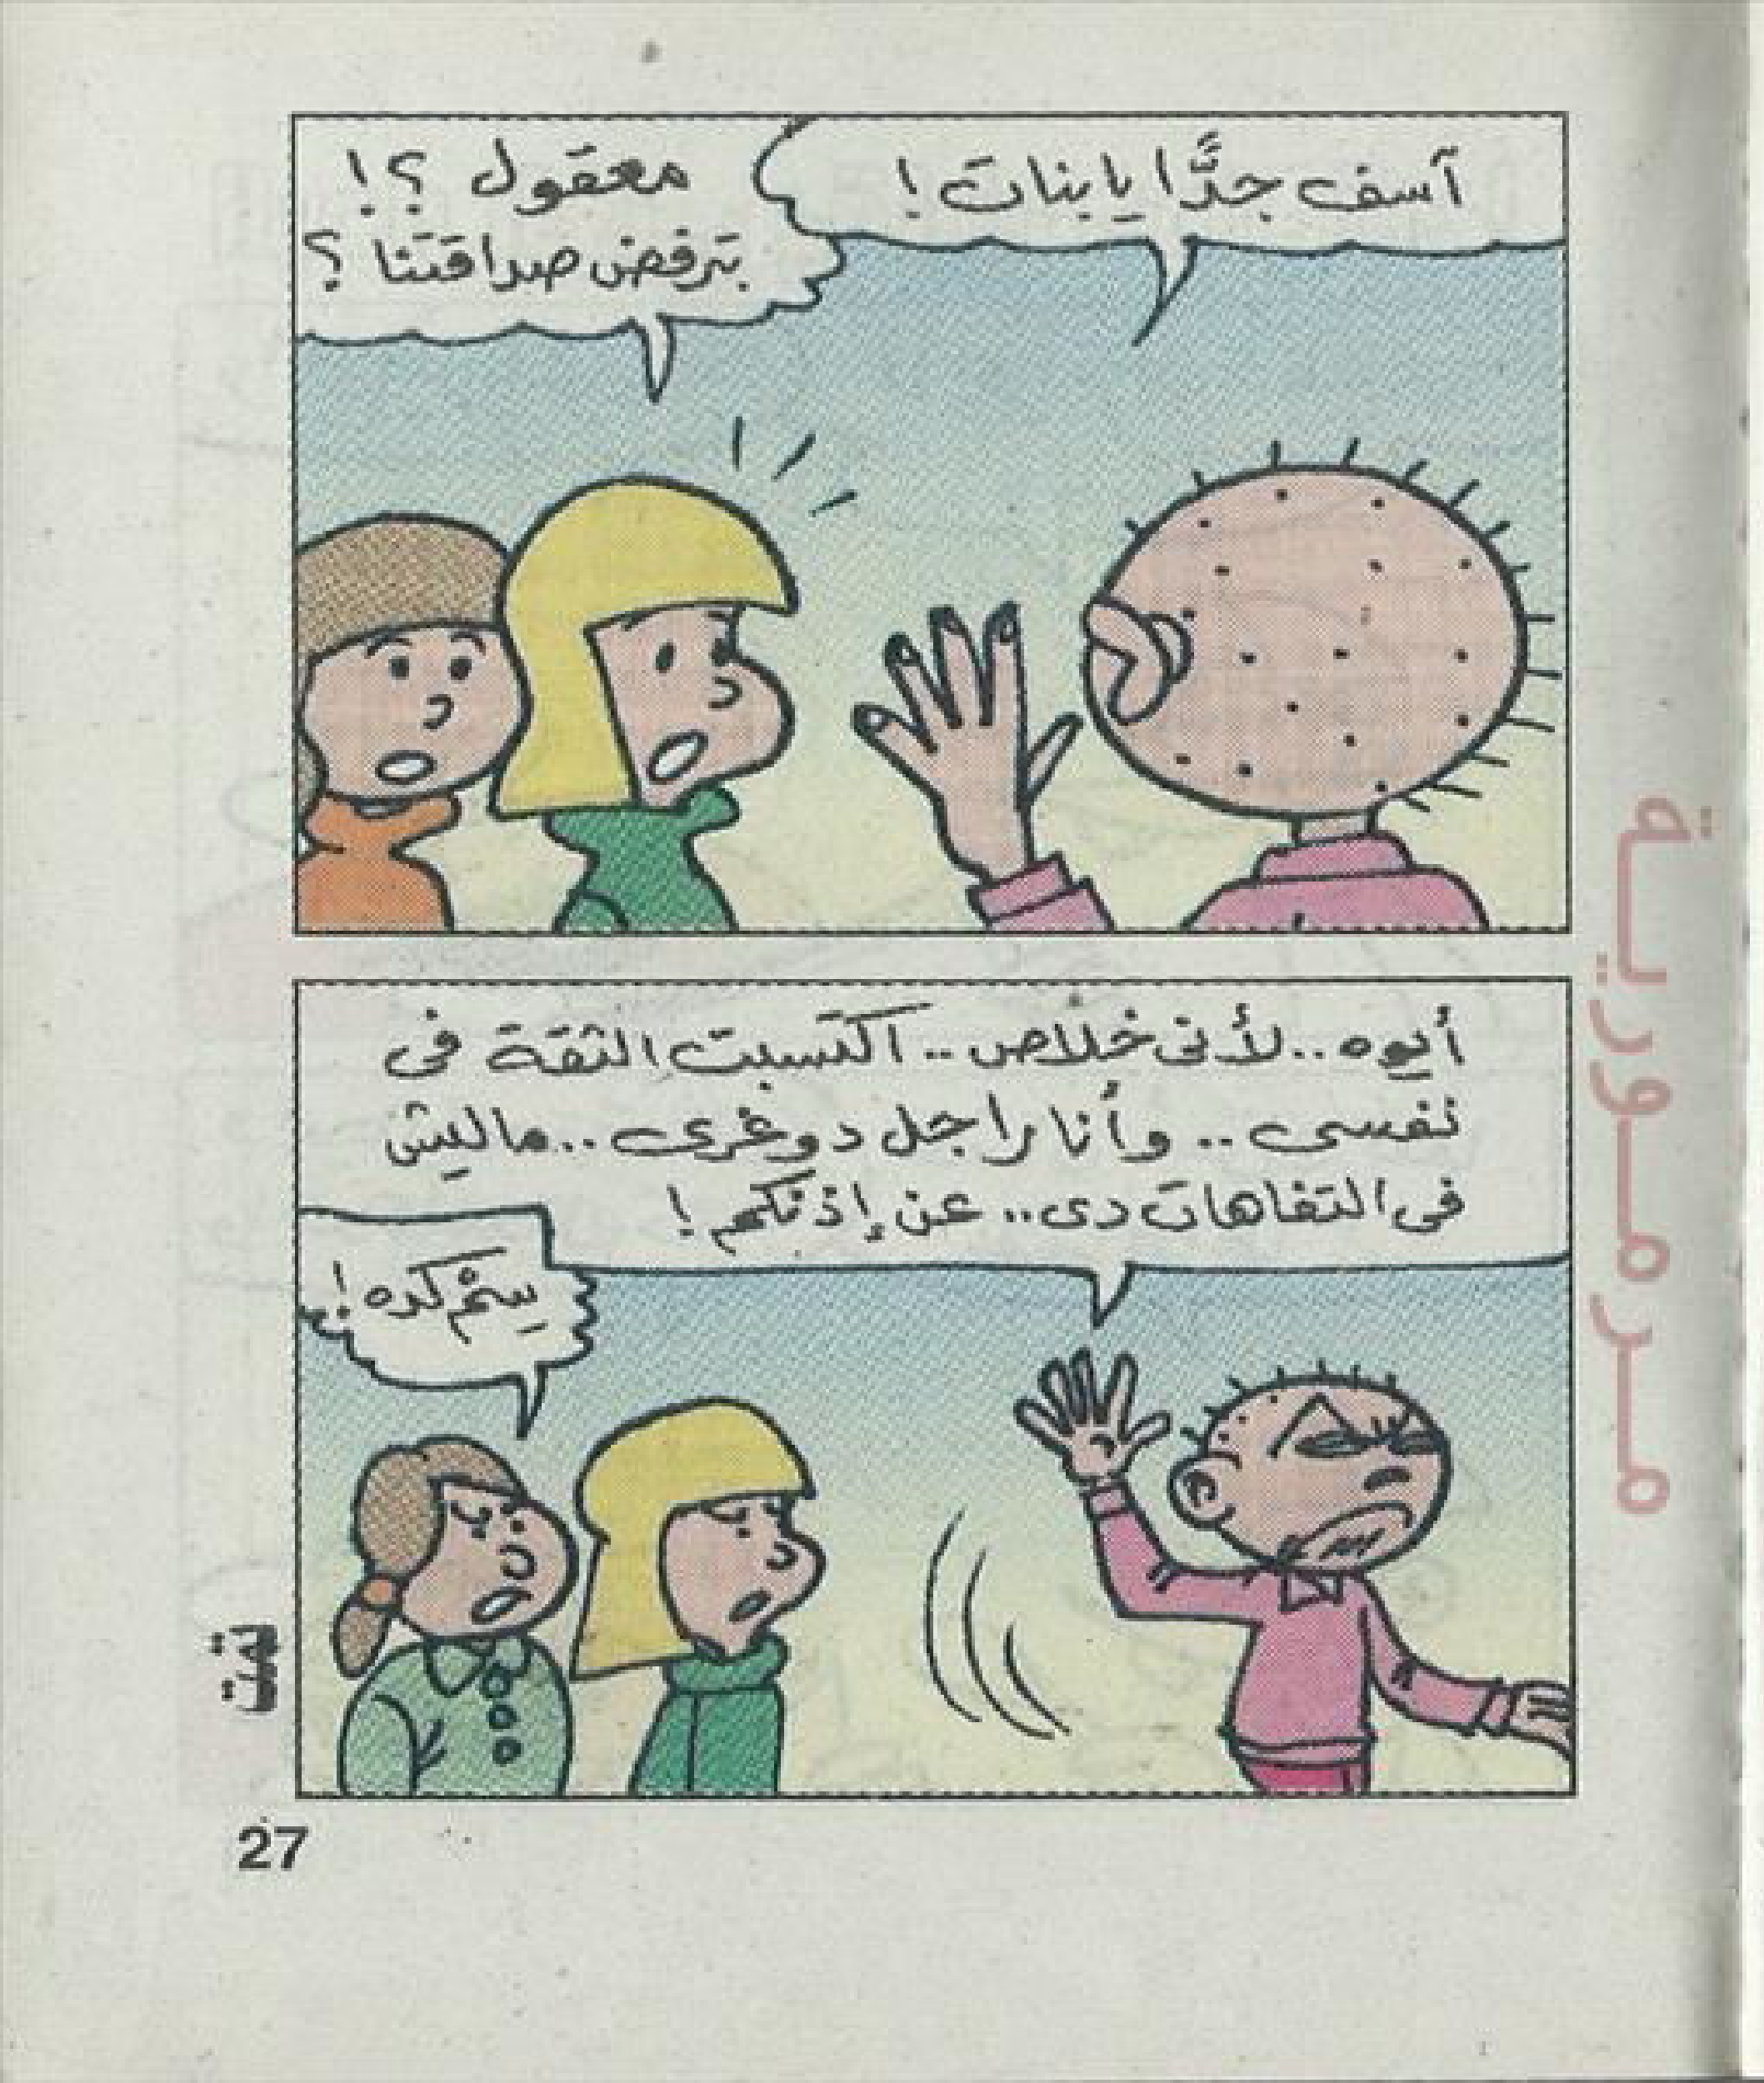 آسف جدًّا يا بنات !
معقول ؟!
بترفض صداقتنا ؟
أيوه .. لأنى خلاص .. اكتسبت الثقة فى
نفسى .. وأنا راجل دوغرى .. ماليش
فى التفاهات دى .. عن إذنكم !
سِتْم كده !
تمت
27
مرمورية